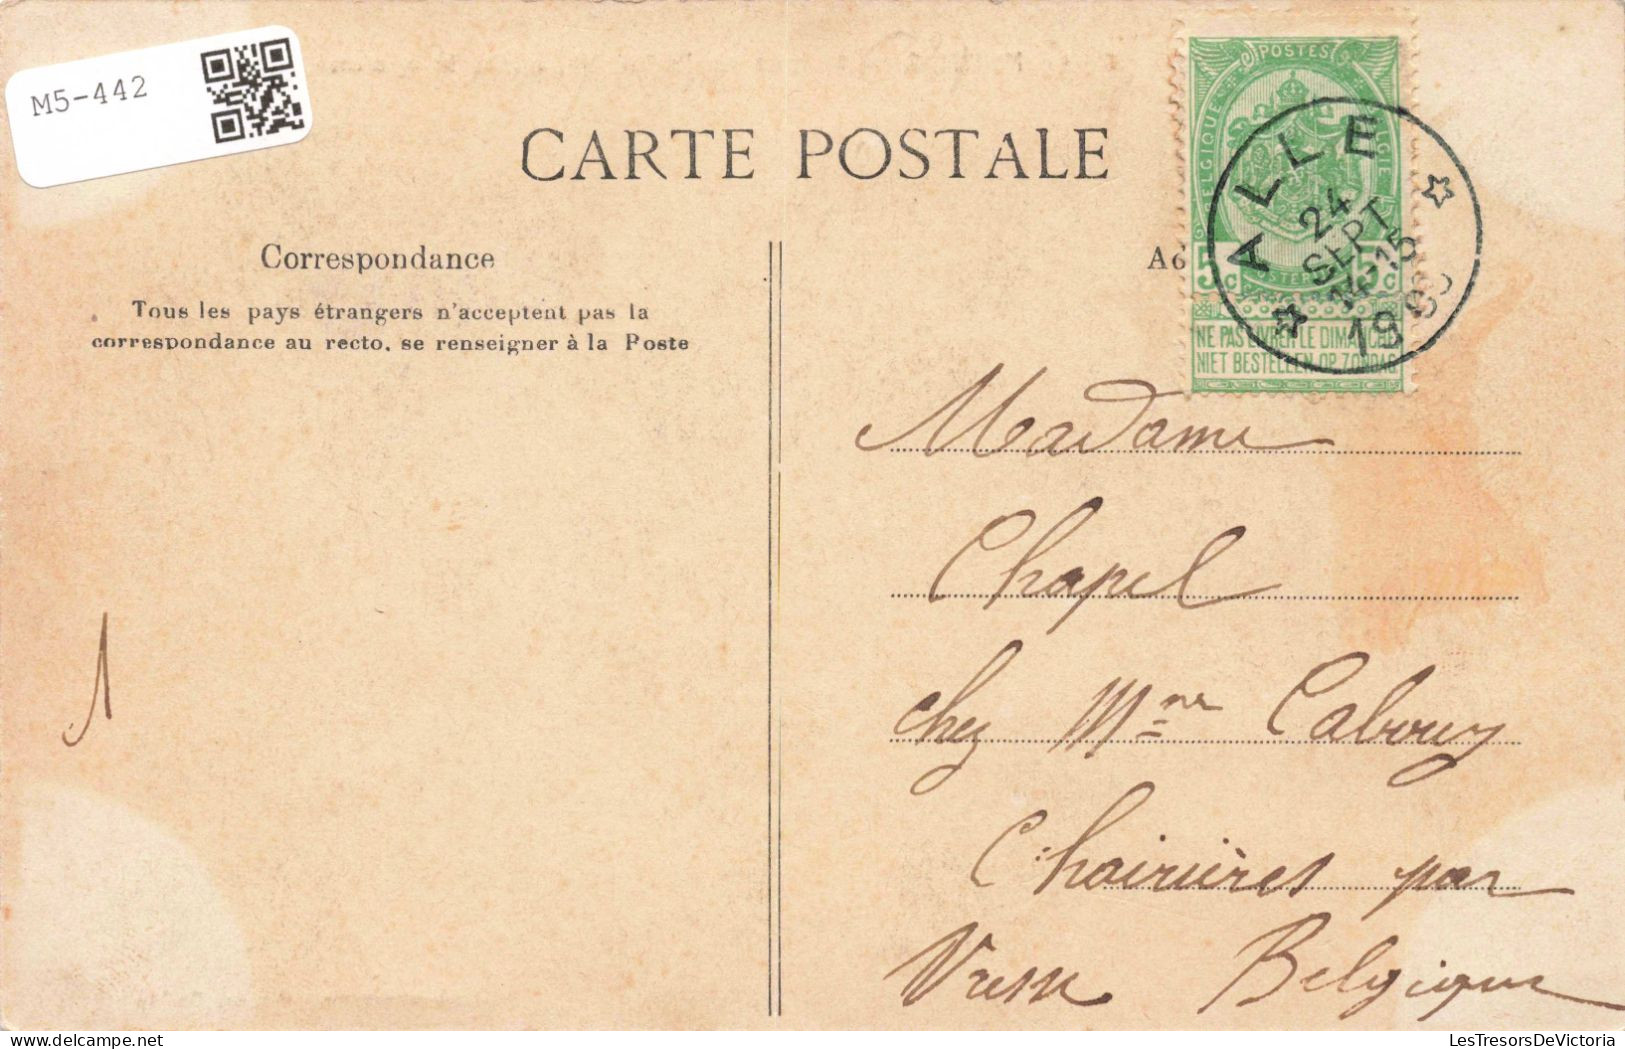 M5-442
CARTE POSTALE
POSTES
BELGIQUE
BELGIE
5c
ALLE
24
SEPT
14-15
Correspondance
Tous les pays étrangers n'acceptent pas la
correspondance au recto, se renseigner à la Poste
NE PAS LIVRER LE DIMANCHE
NIET BESTELLEN OP ZONDAG
Madame
Chapel
chez Mme Cabouy
Chairières par
Vresse Belgique
LesTresorsDeVictoria